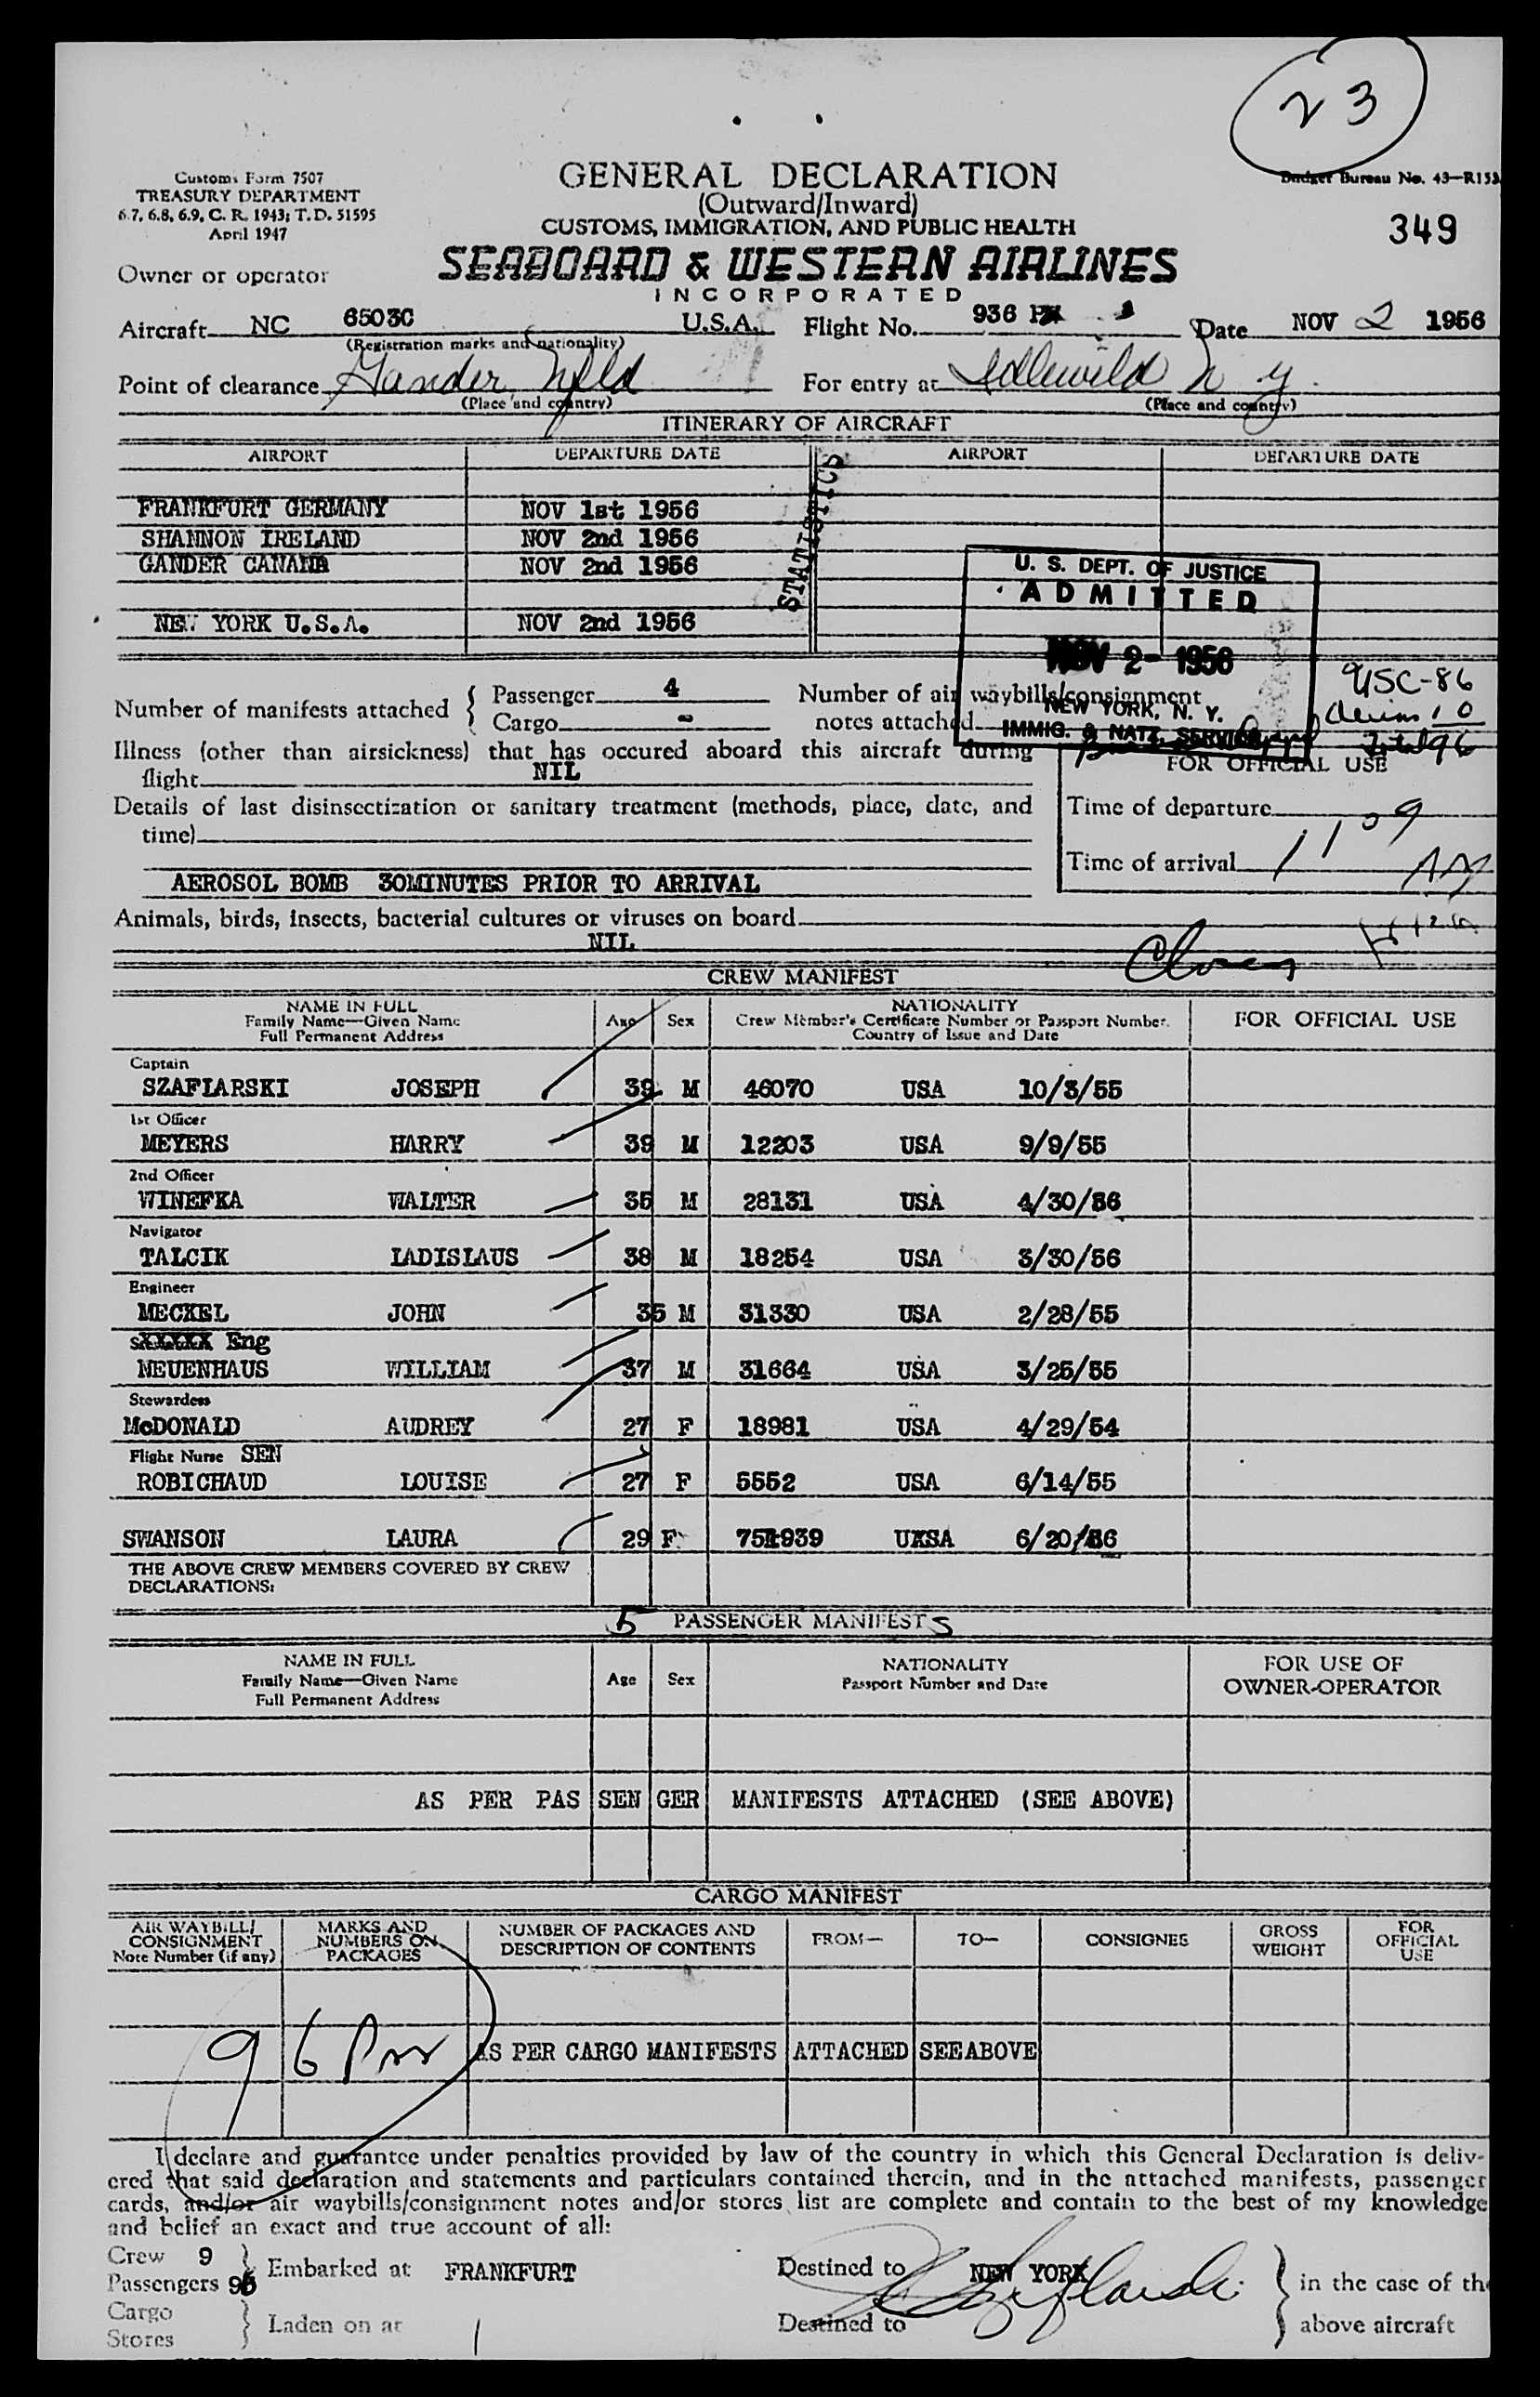 23
Customs Form 7507
TREASURY DEPARTMENT
6.7, 6.8, 6.9, C. R. 1943; T. D. 51595
April 1947
GENERAL DECLARATION
(Outward/Inward)
CUSTOMS, IMMIGRATION, AND PUBLIC HEALTH
Budget Bureau No. 43-R153
349
Owner or operator
SEABOARD & WESTERN AIRLINES
INCORPORATED
Aircraft NC 6503C U.S.A. Flight No. 936 Date NOV 2 1956
(Registration marks and nationality)
Point of clearance Gander Nfld For entry at Idlewild N Y.
(Place and country) (Place and country)
ITINERARY OF AIRCRAFT
AIRPORT DEPARTURE DATE AIRPORT DEPARTURE DATE
STATISTICS
FRANKFURT GERMANY NOV 1st 1956
SHANNON IRELAND NOV 2nd 1956
GANDER CANADA NOV 2nd 1956
NEW YORK U.S.A. NOV 2nd 1956
U. S. DEPT. OF JUSTICE
ADMITTED
NOV 2- 1956
NEW YORK, N. Y.
IMMIG. & NATZ. SERVICE
USC-86
aliens 10
Total 96
Number of manifests attached { Passenger 4 Number of air waybills/consignment
Cargo - notes attached
Illness (other than airsickness) that has occured aboard this aircraft during
flight NIL
FOR OFFICIAL USE
Details of last disinsectization or sanitary treatment (methods, place, date, and
time)
Time of departure
Time of arrival 1109
AEROSOL BOMB 30MINUTES PRIOR TO ARRIVAL
Animals, birds, insects, bacterial cultures or viruses on board
NIL
CREW MANIFEST
NAME IN FULL
Family Name—Given Name
Full Permanent Address
Age Sex
NATIONALITY
Crew Member's Certificate Number or Passport Number.
Country of Issue and Date
FOR OFFICIAL USE
Captain
SZAFLARSKI JOSEPH 39 M 46070 USA 10/3/55
1st Officer
MEYERS HARRY 39 M 12203 USA 9/9/55
2nd Officer
WINEFKA WALTER 35 M 28131 USA 4/30/56
Navigator
TALCIK LADISLAUS 38 M 18254 USA 3/30/56
Engineer
MECKEL JOHN 35 M 31330 USA 2/28/55
Eng
NEUENHAUS WILLIAM 37 M 31664 USA 3/25/55
Stewardess
McDONALD AUDREY 27 F 18981 USA 4/29/54
Flight Nurse SEN
ROBICHAUD LOUISE 27 F 5552 USA 6/14/55
SWANSON LAURA 29 F USA 6/20/56
THE ABOVE CREW MEMBERS COVERED BY CREW
DECLARATIONS:
5 PASSENGER MANIFESTS
NAME IN FULL
Family Name—Given Name
Full Permanent Address
Age Sex
NATIONALITY
Passport Number and Date
FOR USE OF
OWNER-OPERATOR
AS PER PAS SEN GER MANIFESTS ATTACHED (SEE ABOVE)
CARGO MANIFEST
AIR WAYBILL/
CONSIGNMENT
Note Number (if any)
MARKS AND
NUMBERS ON
PACKAGES
NUMBER OF PACKAGES AND
DESCRIPTION OF CONTENTS
FROM— TO— CONSIGNEE
GROSS
WEIGHT
FOR
OFFICIAL
USE
96 AS PER CARGO MANIFESTS ATTACHED SEEABOVE
I declare and guarantee under penalties provided by law of the country in which this General Declaration is deliv-
ered that said declaration and statements and particulars contained therein, and in the attached manifests, passenger
cards, and/or air waybills/consignment notes and/or stores list are complete and contain to the best of my knowledge
and belief an exact and true account of all:
Crew 9
Passengers 96
} Embarked at FRANKFURT Destined to NEW YORK } in the case of the
Cargo
Stores
} Laden on at Destined to above aircraft